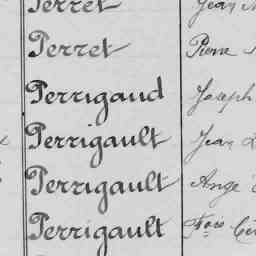 Perret Jean
Perret Pierre
Perrigaud Joseph
Perrigault Jean
Perrigault Ange
Perrigault Fçois